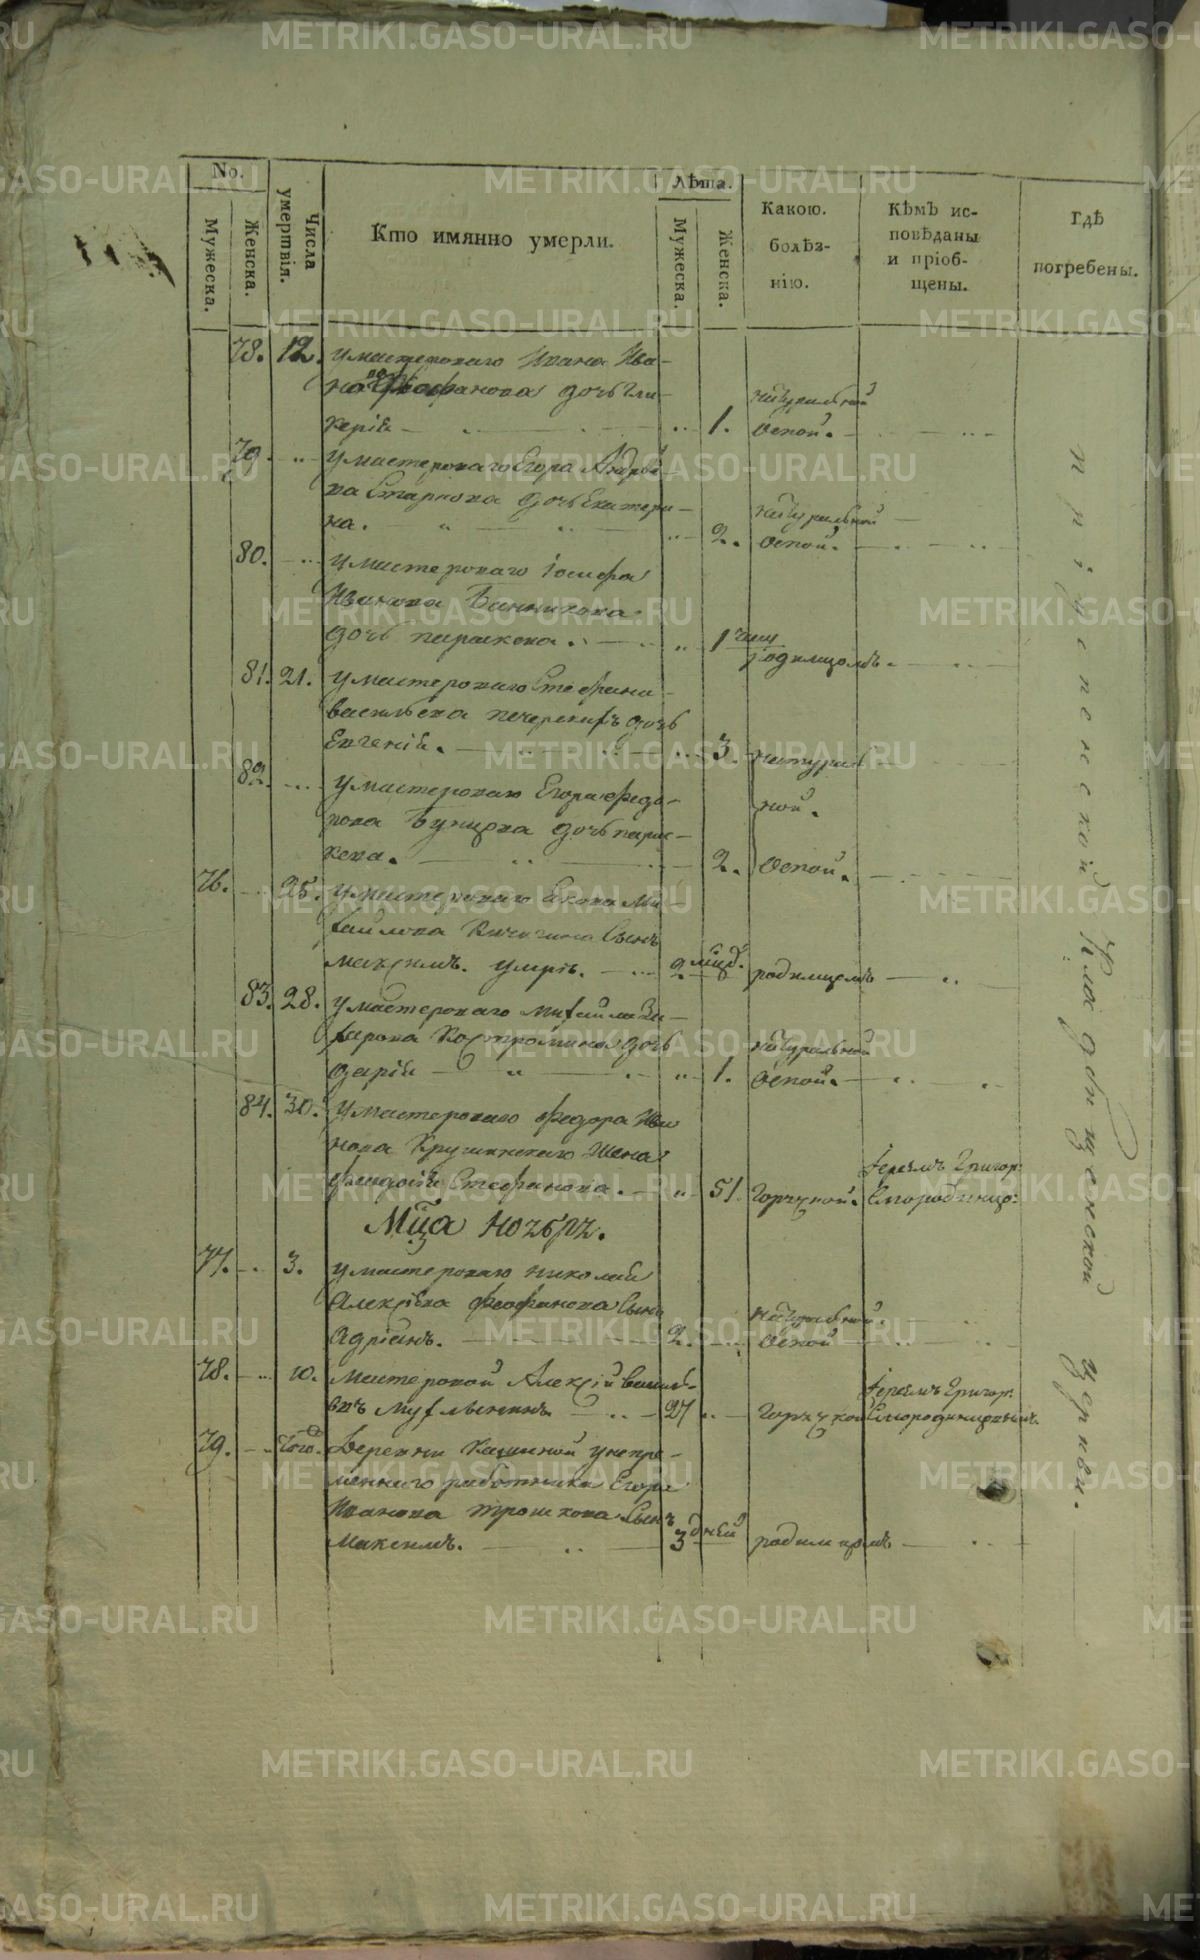 No.
Мужеска.
Женска.
Числа умертвія.
Кто имянно умерли.
Лѣта.
Мужеска.
Женска.
Какою. болѣз- нію.
Кѣмъ ис- повѣданы и пріоб- щены.
Гдѣ погребены.
78. 12. У мастероваго Ивана Ива-
нова Феофанова дочь Гли-
керія 1. натуральной оспой.
79. У мастероваго Егора Андрее-
ва дочь Екатери-
на. 2. натуральной оспой.
80. У мастероваго Іосифа
Иванова Банникова
дочь параскева. 1 родимцомъ.
81. 21. У мастероваго Стефана
васильева дочь
Евгенія. 3. натураль-
82. У мастероваго Егора федо-
рова дочь парас-
кева. 2. ной. оспой.
76. 25. У мастероваго Якова Ми-
хайлова Кичигина сынъ
Максимъ. умре. 2 мцъ. родимцомъ
83. 28. У мастероваго Михайла За-
харова Костромина дочь
дарія 1. натуральной оспой.
84. 30. У мастероваго Федора Ива
нова жена
Стефанова. 51. горячкой. Іереемъ Григор:
Смородинцо:
Мца ноября.
77. 3. У мастероваго николая
Алексѣева Феофанова сынъ
Адріанъ. 2. натуральной. оспой
78. 10. Мастеровой Алексѣй василь-
евъ Мухлынинъ 27 горячкой Іереемъ Григор:
Смородинцовымъ.
79. того. Деревни Кашиной у непре-
меннаго работника Егора
Иванова трошкова сынъ
Максимъ. 3 дней родимцомъ
при успенской церкви.
METRIKI.GASO-URAL.RU